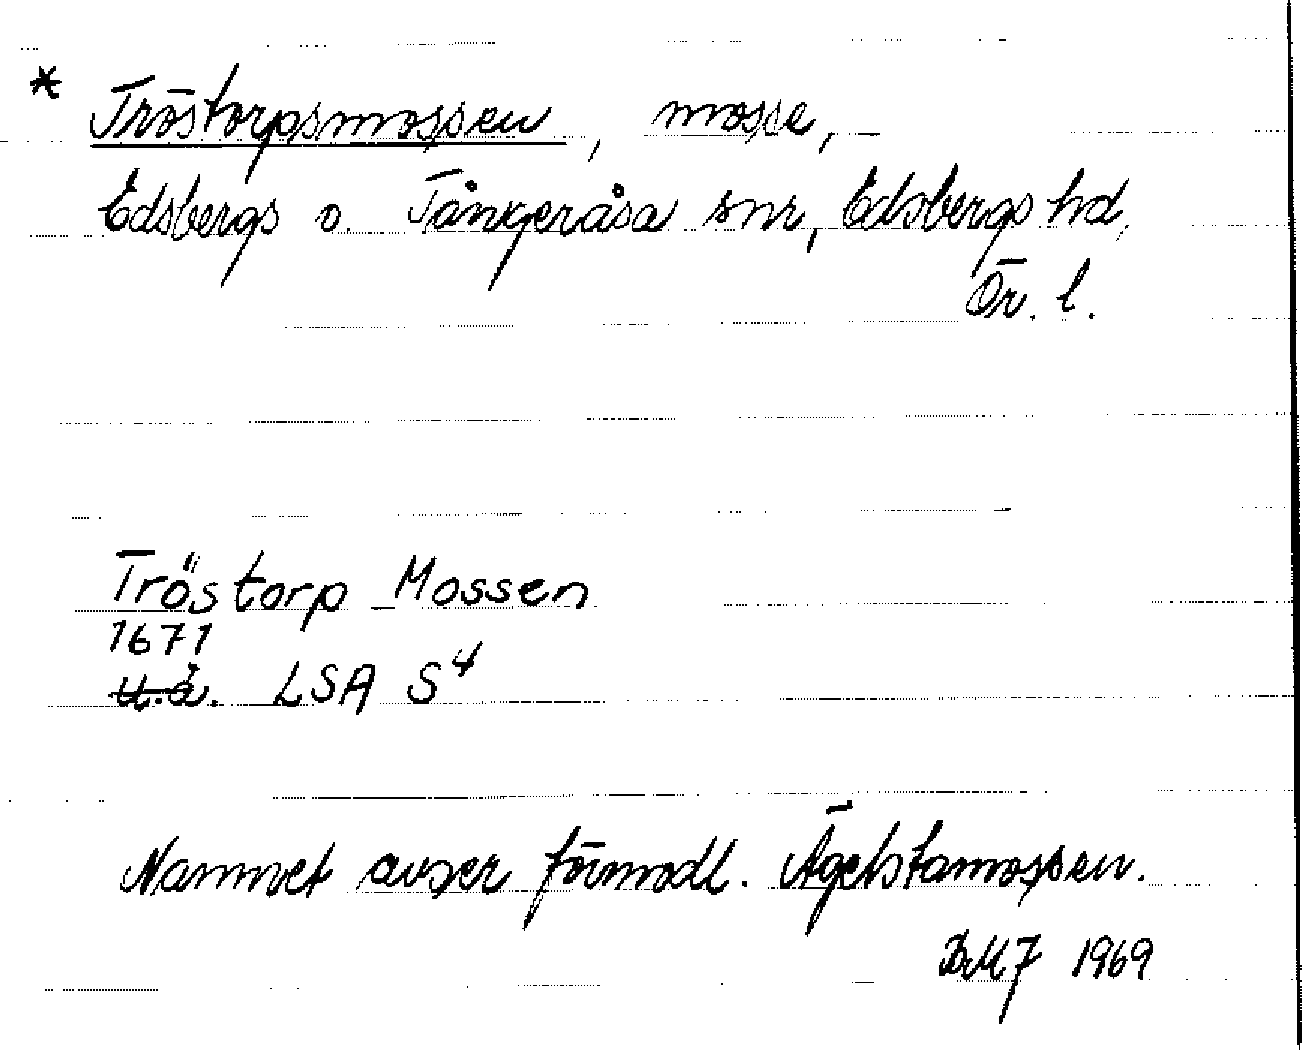 * Tröstorpsmossen, mosse,
Edsbergs o. Tångeråsa snr, Edsbergs hd,
Ör. l.
Tröstorp Mossen
1671
u.å. LSA S4
Namnet avser förmodl. Ägelstamossen.
BMF 1969